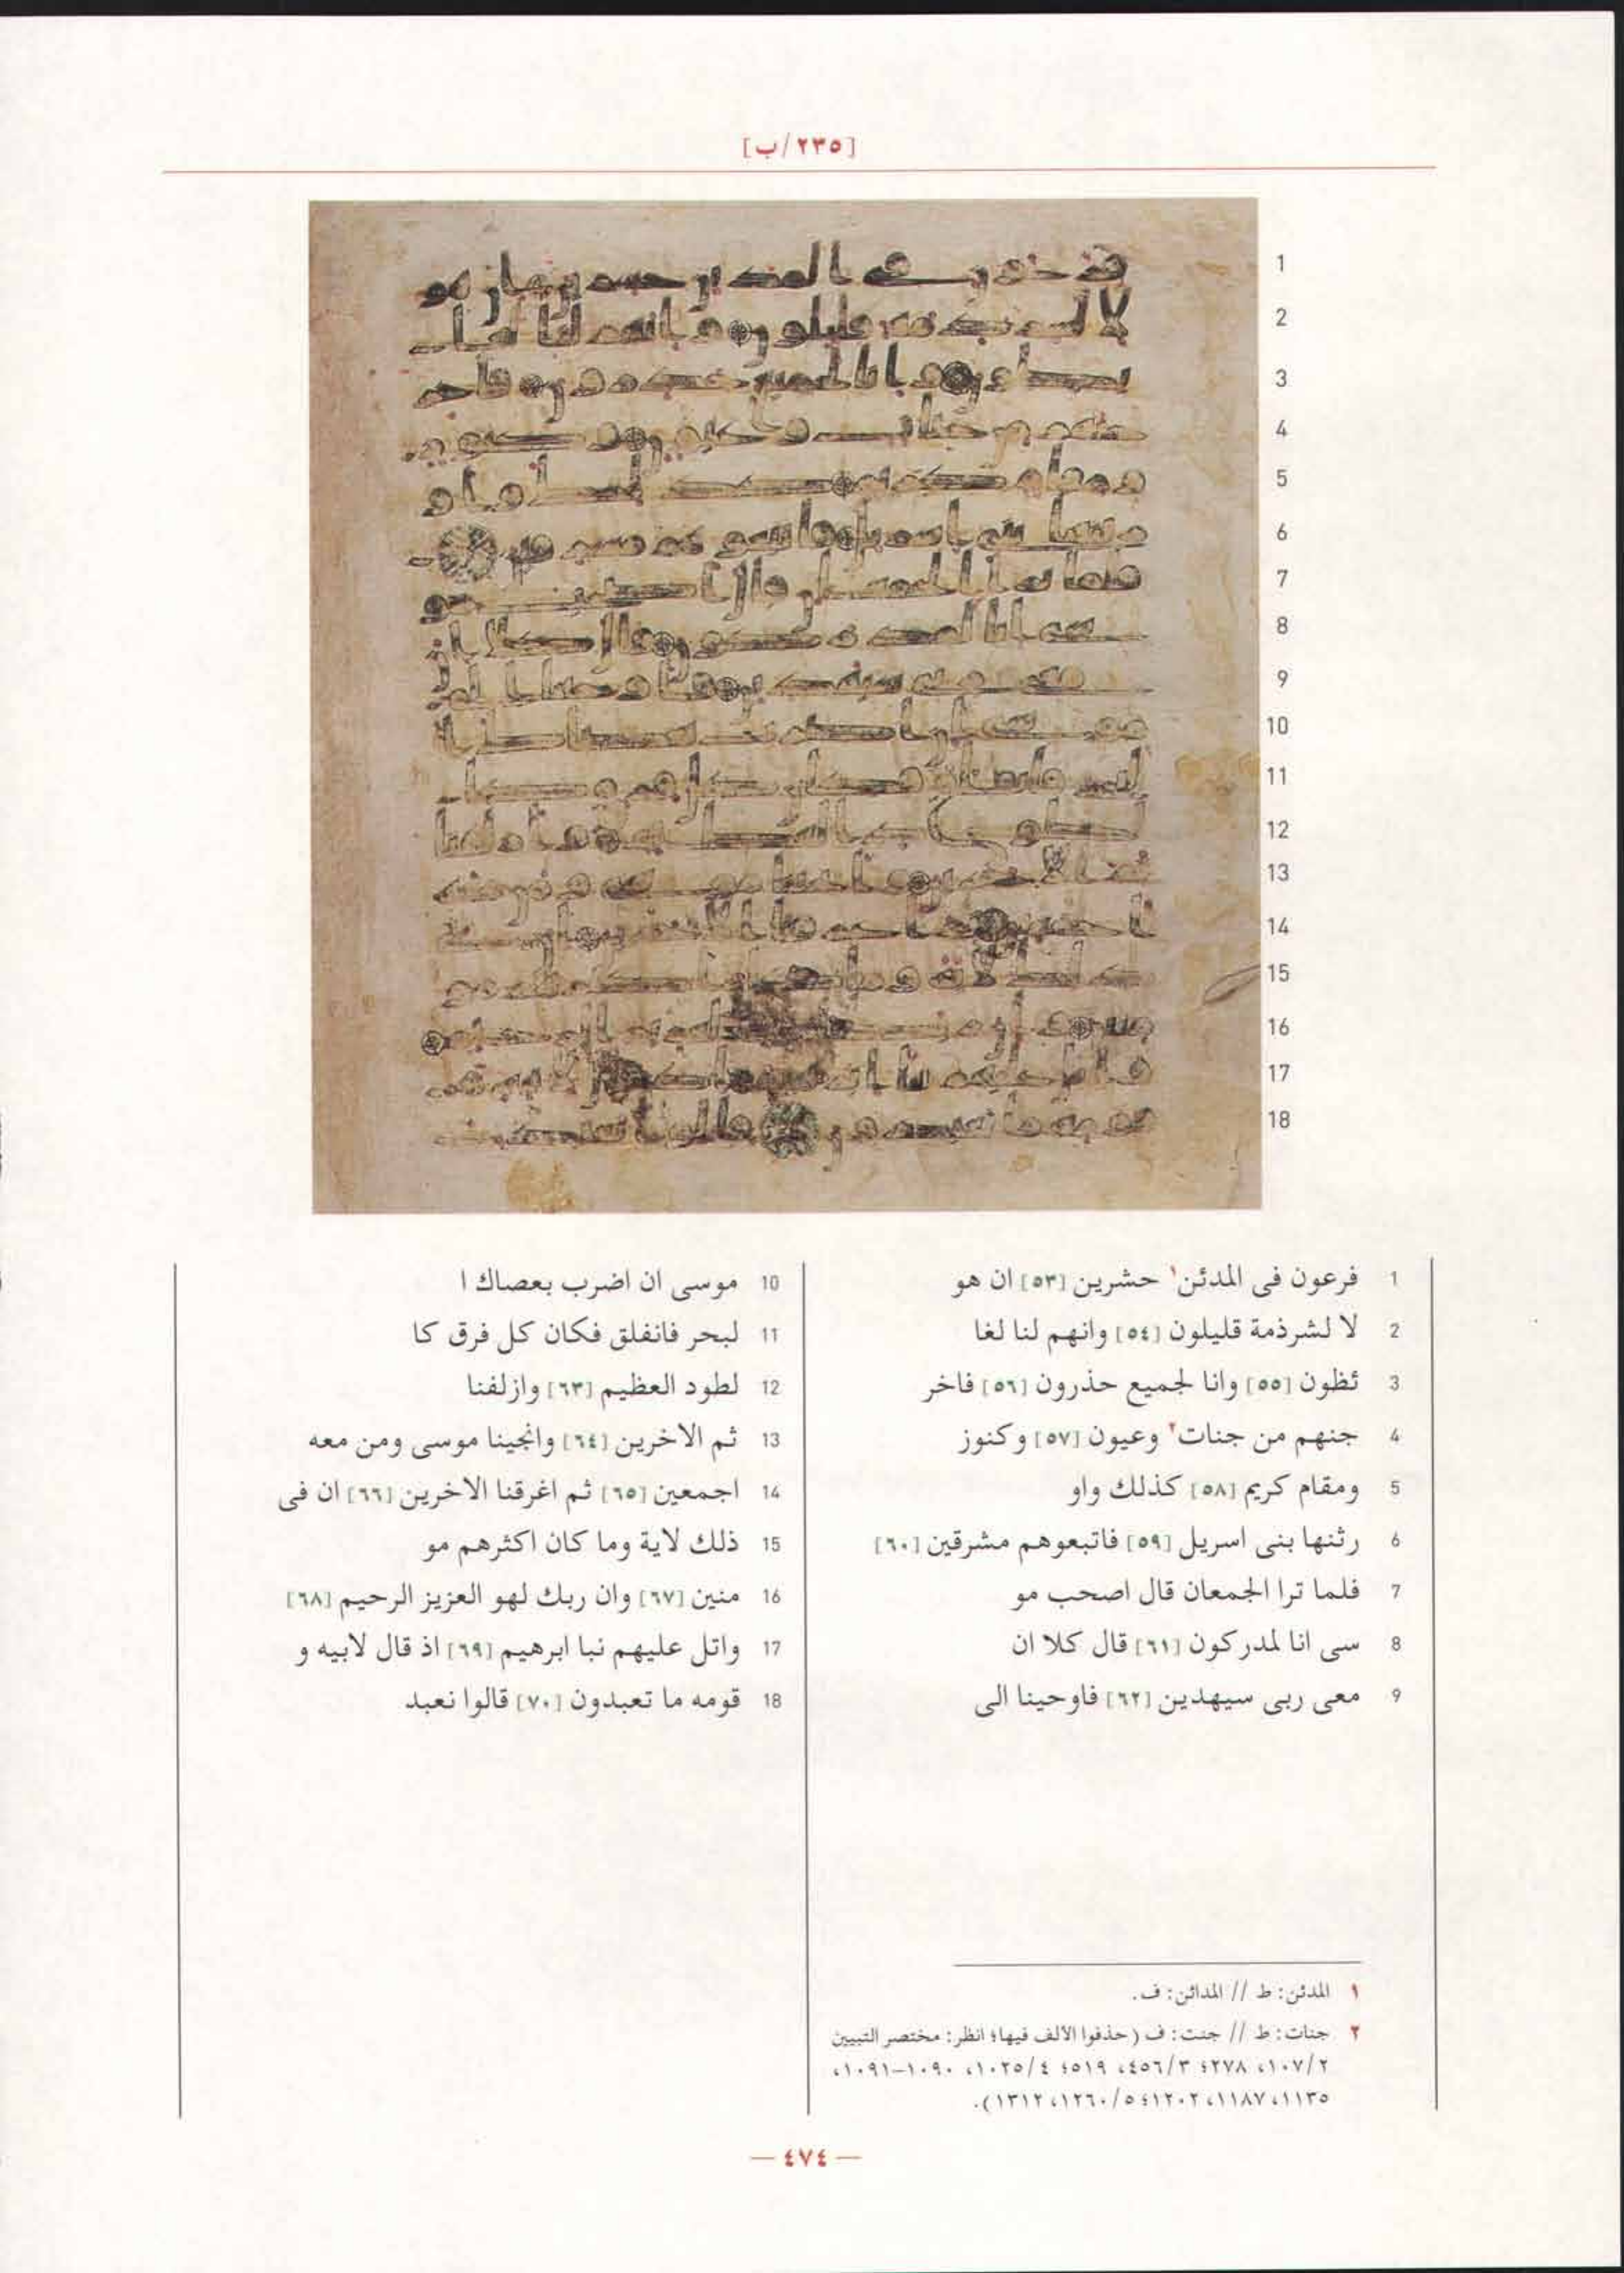 [٢٣٥/ب]
1
2
3
4
5
6
7
8
9
10
11
12
13
14
15
16
17
18
1 فرعون فى المدئن١ حشرين [٥٣] ان هو
2 لا لشرذمة قليلون [٥٤] وانهم لنا لغا
3 ئظون [٥٥] وانا لجميع حذرون [٥٦] فاخر
4 جنهم من جنات٢ وعيون [٥٧] وكنوز
5 ومقام كريم [٥٨] كذلك واو
6 رثنها بنى اسريل [٥٩] فاتبعوهم مشرقين [٦٠]
7 فلما ترا الجمعان قال اصحب مو
8 سى انا لمدركون [٦١] قال كلا ان
9 معى ربى سيهدين [٦٢] فاوحينا الى
10 موسى ان اضرب بعصاك ا
11 لبحر فانفلق فكان كل فرق كا
12 لطود العظيم [٦٣] وازلفنا
13 ثم الاخرين [٦٤] وانجينا موسى ومن معه
14 اجمعين [٦٥] ثم اغرقنا الاخرين [٦٦] ان فى
15 ذلك لاية وما كان اكثرهم مو
16 منين [٦٧] وان ربك لهو العزيز الرحيم [٦٨]
17 واتل عليهم نبا ابرهيم [٦٩] اذ قال لابيه و
18 قومه ما تعبدون [٧٠] قالوا نعبد
١ المدئن: ط // المدائن: ف.
٢ جنات: ط // جنت: ف (حذفوا الألف فيها؛ انظر: مختصر التبيين
٢/١٠٧، ٢٧٨؛ ٣/٤٥٦، ٥١٩؛ ٤/١٠٢٥، ١٠٩٠-١٠٩١،
١١٣٥، ١١٨٧، ١٢٠٢؛ ٥/١٢٦٠، ١٣١٢).
— ٤٧٤ —